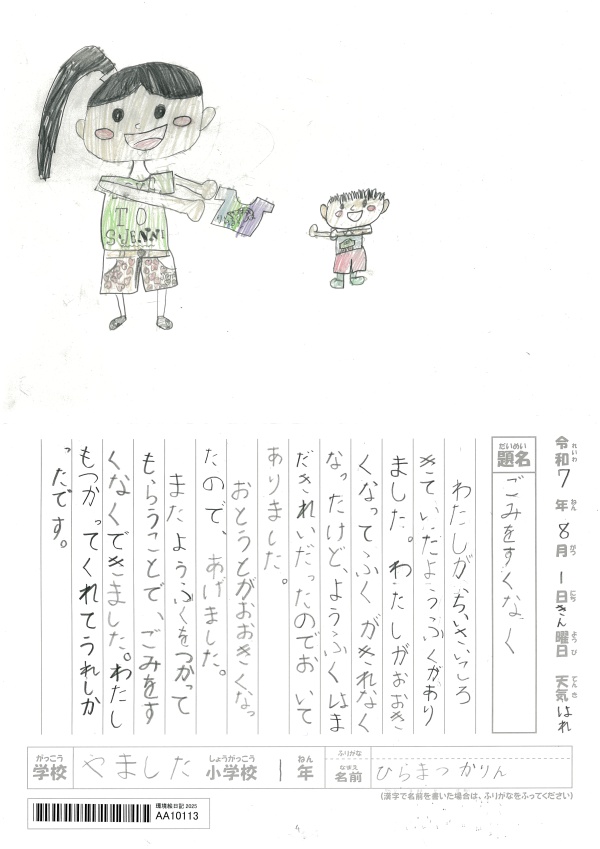 TO
SUENNI
令和7年8月1日きん曜日 天気はれ
れいわ ねん がつ にち ようび てんき
だいめい
題名
ごみをすくなく
わたしがちいさいころ
きていたようふくがあり
ました。わたしがおおき
くなってふくがきれなく
なったけど、ようふくはま
だきれいだったのでおいて
ありました。
おとうとがおおきくなっ
たので、あげました。
またようふくをつかって
もらうことで、ごみをす
くなくできました。わたし
もつかってくれてうれしか
ったです。
がっこう しょうがっこう ねん ふりがな
学校 やました 小学校 1年
なまえ
名前 ひらまつ かりん
(漢字で名前を書いた場合は、ふりがなをふってください)
環境絵日記 2025
AA10113